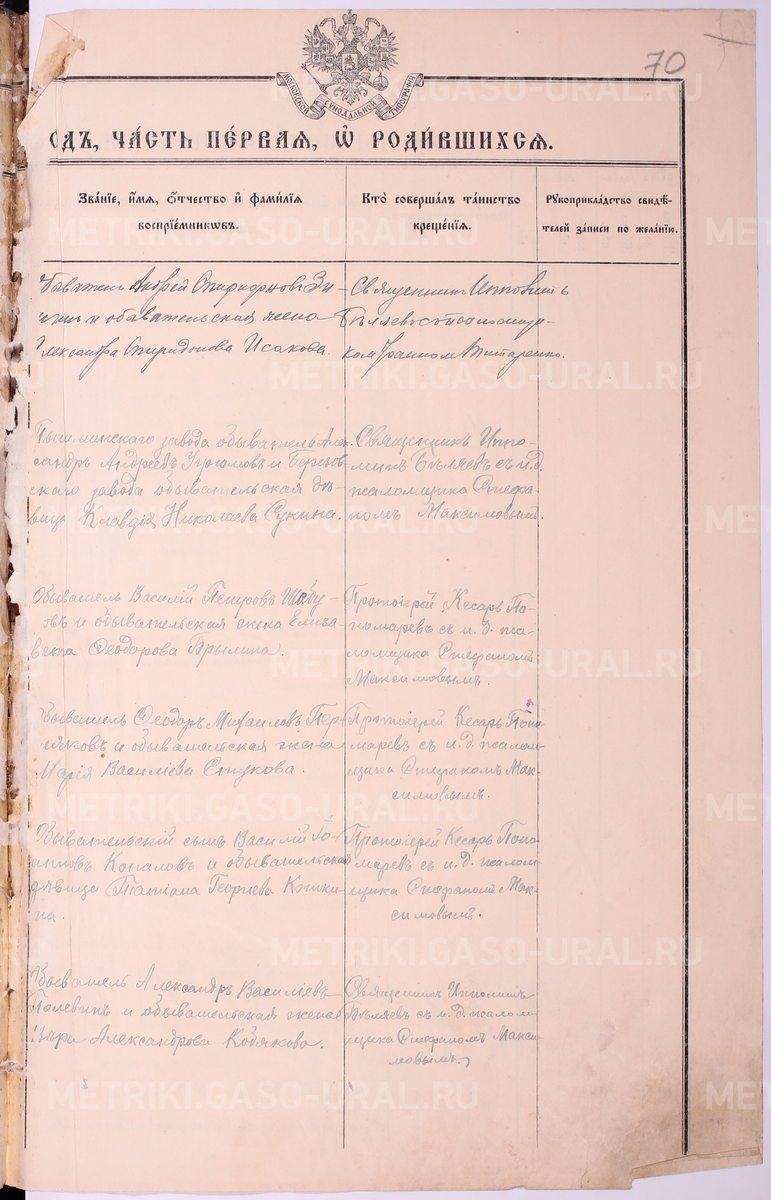 70
МОСКОВСКОЙ СѴНОДАЛЬНОЙ ТИПОГРАФІИ
ОДЪ, ЧА́СТЬ ПЕ́РВАЯ, Ѡ҆ РОДИ́ВШИХСЯ.
Зва́нїе, и҆́мя, ѻ҆́тчество и҆ фами́лїя
воспрїе́мникѡвъ.
Кто̀ соверша́лъ та́инство
креще́нїя.
Рꙋкоприкла́дство свидѣ́-
телей за́писи по жела́нїю.
быватель Андрей Спиридонов
и обывательская жена
лександра Спиридонова Исакова.
Священник Ипполит
Беляев с псаломщи-
ком Титаренко.
Пышминскаго завода обыватель Алек-
сандръ Андреевъ Угрюмовъ и Березов-
скаго завода обывательская дѣ-
вица Клавдія Николаева Сукина.
Священникъ Иппо-
литъ Бѣляевъ съ и.д.
псаломщика Стефа-
номъ Максимовымъ.
Обыватель Василій Петровъ Шабу-
овъ и обывательская жена Елиза-
вета Ѳеодорова Брылина.
Протоіерей Кесарь По-
номаревъ съ и. д. пса-
ломщика Стефаномъ
Максимовымъ.
быватель Ѳеодоръ Михаиловъ Пер-
мяковъ и обывательская жена
Марія Василіева Стукова.
Протоіерей Кесарь Поно-
маревъ съ и. д. псалом-
щика Стефаномъ Мак-
симовымъ.
бывательскій сынъ Василій Іо-
анновъ Копаловъ и обывательская
дѣвица Татіана Георгіева Кожи-
на.
Протоіерей Кесарь Поно-
маревъ съ и. д. псалом-
щика Стефаномъ Мак-
симовымъ.
Обыватель Александръ Василіевъ
Полевинъ и обывательская жена
Вѣра Александрова Кобякова.
Священникъ Ипполитъ
Бѣляевъ съ и. д. псалом-
щика Стефаномъ Макси-
мовымъ.
METRIKI.GASO-URAL.RU